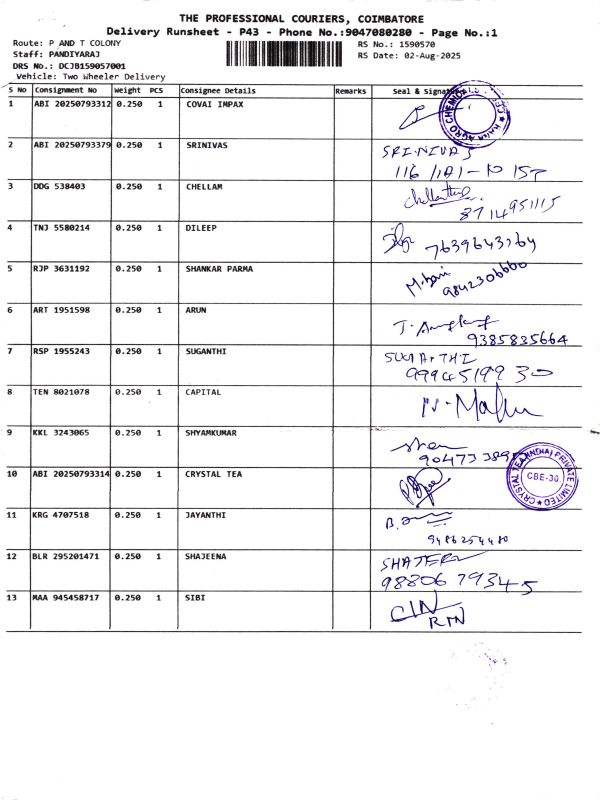 THE PROFESSIONAL COURIERS, COIMBATORE
Delivery Runsheet - P43 - Phone No.:9047080280 - Page No.:1
Route: P AND T COLONY
Staff: PANDIYARAJ
DRS No.: DCJB159057001
Vehicle: Two Wheeler Delivery
RS No.: 1590570
RS Date: 02-Aug-2025
S No Consignment No Weight PCS Consignee Details Remarks Seal &
1 ABI 20250793312 0.250 1 COVAI IMPAX
2 ABI 20250793379 0.250 1 SRINIVAS SRINIVAS
3 DDG 538403 0.250 1 CHELLAM
8714951115
4 TNJ 5580214 0.250 1 DILEEP
5 RJP 3631192 0.250 1 SHANKAR PARMA
9842306660
6 ART 1951598 0.250 1 ARUN
9385835664
7 RSP 1955243 0.250 1 SUGANTHI
8 TEN 8021078 0.250 1 CAPITAL
9 KKL 3243065 0.250 1 SHYAMKUMAR
10 ABI 20250793314 0.250 1 CRYSTAL TEA
CRYSTAL TEA (INDIA) PRIVATE LIMITED
CBE-30
11 KRG 4707518 0.250 1 JAYANTHI
9486254480
12 BLR 295201471 0.250 1 SHAJEENA
9880679345
13 MAA 945458717 0.250 1 SIBI